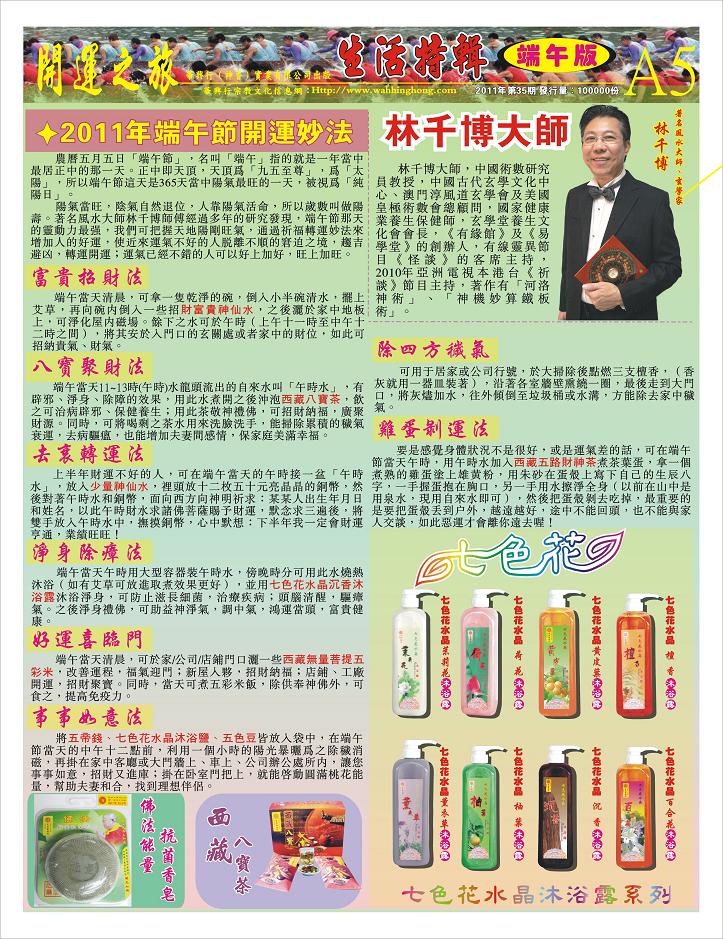 開運之旅
華興行(神香)實業有限公司出版
華興行宗教文化信息網：Http://www.wahhinghong.com
生活特輯
端午版
2011年第35期 發行量：100000份
A5
2011年端午節開運妙法
農曆五月五日「端午節」，名叫「端午」指的就是一年當中
最居正中的那一天。正中即天頂，天頂爲「九五至尊」，爲「太
陽」，所以端午節這天是365天當中陽氣最旺的一天，被視爲「純
陽日」。
陽氣當旺，陰氣自然退位，人靠陽氣活命，所以歲數叫做陽
壽。著名風水大師林千博師傅經過多年的研究發現，端午節那天
的靈動力最强，我們可把握天地陽剛旺氣，通過祈福轉運妙法來
增加人的好運，使近來運氣不好的人脱離不順的窘迫之境，趨吉
避凶，轉運開運；運氣已經不錯的人可以好上加好，旺上加旺。
富貴招財法
端午當天清晨，可拿一隻乾淨的碗，倒入小半碗清水，擺上
艾草，再向碗内倒入一些招財富貴神仙水，之後灑於家中地板
上，可淨化屋内磁場。餘下之水可於午時（上午十一時至中午十
二時之間），將其安於入門口的玄關處或者家中的財位，如此可
招納貴氣、財氣。
八寶聚財法
端午當天11~13時(午時)水龍頭流出的自來水叫「午時水」，有
辟邪、淨身、除障的效果，用此水煮開之後沖泡西藏八寶茶，飲
之可治病辟邪、保健養生；用此茶敬神禮佛，可招財納福，廣聚
財源。同時，可將喝剩之茶水用來洗臉洗手，能掃除累積的穢氣
衰運，去病驅瘟，也能增加夫妻間感情，保家庭美滿幸福。
去衰轉運法
上半年財運不好的人，可在端午當天的午時接一盆「午時
水」，放入少量神仙水，裡頭放十二枚五十元亮晶晶的銅幣，然
後對著午時水和銅幣，面向西方向神明祈求：某某人出生年月日
和姓名，以此午時財水求諸佛菩薩賜予財運，默念求三遍後，將
雙手放入午時水中，撫摸銅幣，心中默想：下半年我一定會財運
亨通，業績旺旺！
淨身除瘴法
端午當天午時用大型容器裝午時水，傍晚時分可用此水燒熱
沐浴（如有艾草可放進取煮效果更好），並用七色花水晶沉香沐
浴露沐浴淨身，可防止滋長細菌，治療疾病；頭腦清醒，驅瘴
氣。之後淨身禮佛，可助益神淨氣，調中氣，鴻運當頭，富貴健
康。
好運喜臨門
端午當天清晨，可於家/公司/店鋪門口灑一些西藏無量菩提五
彩米，改善運程，福氣迎門；新屋入夥，招財納福；店鋪、工廠
開運，招財聚寶。同時，當天可煮五彩米飯，除供奉神佛外，可
食之，提高免疫力。
事事如意法
將五帝錢、七色花水晶沐浴鹽、五色豆皆放入袋中，在端午
節當天的中午十二點前，利用一個小時的陽光暴曬爲之除穢消
磁，再掛在家中客廳或大門牆上、車上、公司辦公處所内，讓您
事事如意，招財又進庫；掛在卧室門把上，就能啓動圓滿桃花能
量，幫助夫妻和合，找到理想伴侶。
佛法能量
抗菌香皂
西藏
八寶茶
林千博大師
林千博大師，中國術數研究
員教授，中國古代玄學文化中
心、澳門淳風道玄學會及美國
皇極術數會總顧問，國家健康
養生保健師，玄學堂養生文
化會會長，《有緣館》及《易
學堂》的創辦人，有線靈異節
目《怪談》的客席主持，
2010年亞洲電視本港台《祈
談》節目主持，著作有「河洛
神術」、「神機妙算鐵板
術」。
著名風水大師、玄學家
林千博
除四方穢氣
可用于居家或公司行號，於大掃除後點燃三支檀香，（香
灰就用一器皿裝著），沿著各室牆壁熏繞一圈，最後走到大門
口，將灰燼加水，往外傾倒至垃圾桶或水溝，方能除去家中穢
氣。
雞蛋剝運法
要是感覺身體狀況不是很好，或是運氣差的話，可在端午
節當天午時，用午時水加入西藏五路財神茶煮茶葉蛋，拿一個
煮熟的雞蛋塗上雄黄粉，用朱砂在蛋殼上寫下自己的生辰八
字，一手握蛋抱在胸口，另一手用水擦淨全身（以前在山中是
用泉水，現用自來水即可），然後把蛋殼剝去吃掉，最重要的
是要把蛋殼丢到户外，越遠越好，途中不能回頭，也不能與家
人交談，如此惡運才會離你遠去喔！
七色花
七色花水晶茉莉花沐浴露
七色花水晶荷花沐浴露
七色花水晶黄皮葉沐浴露
七色花水晶檀香沐浴露
七色花水晶薰衣草沐浴露
七色花水晶柚葉沐浴露
七色花水晶沉香沐浴露
七色花水晶百合花沐浴露
七色花水晶沐浴露系列